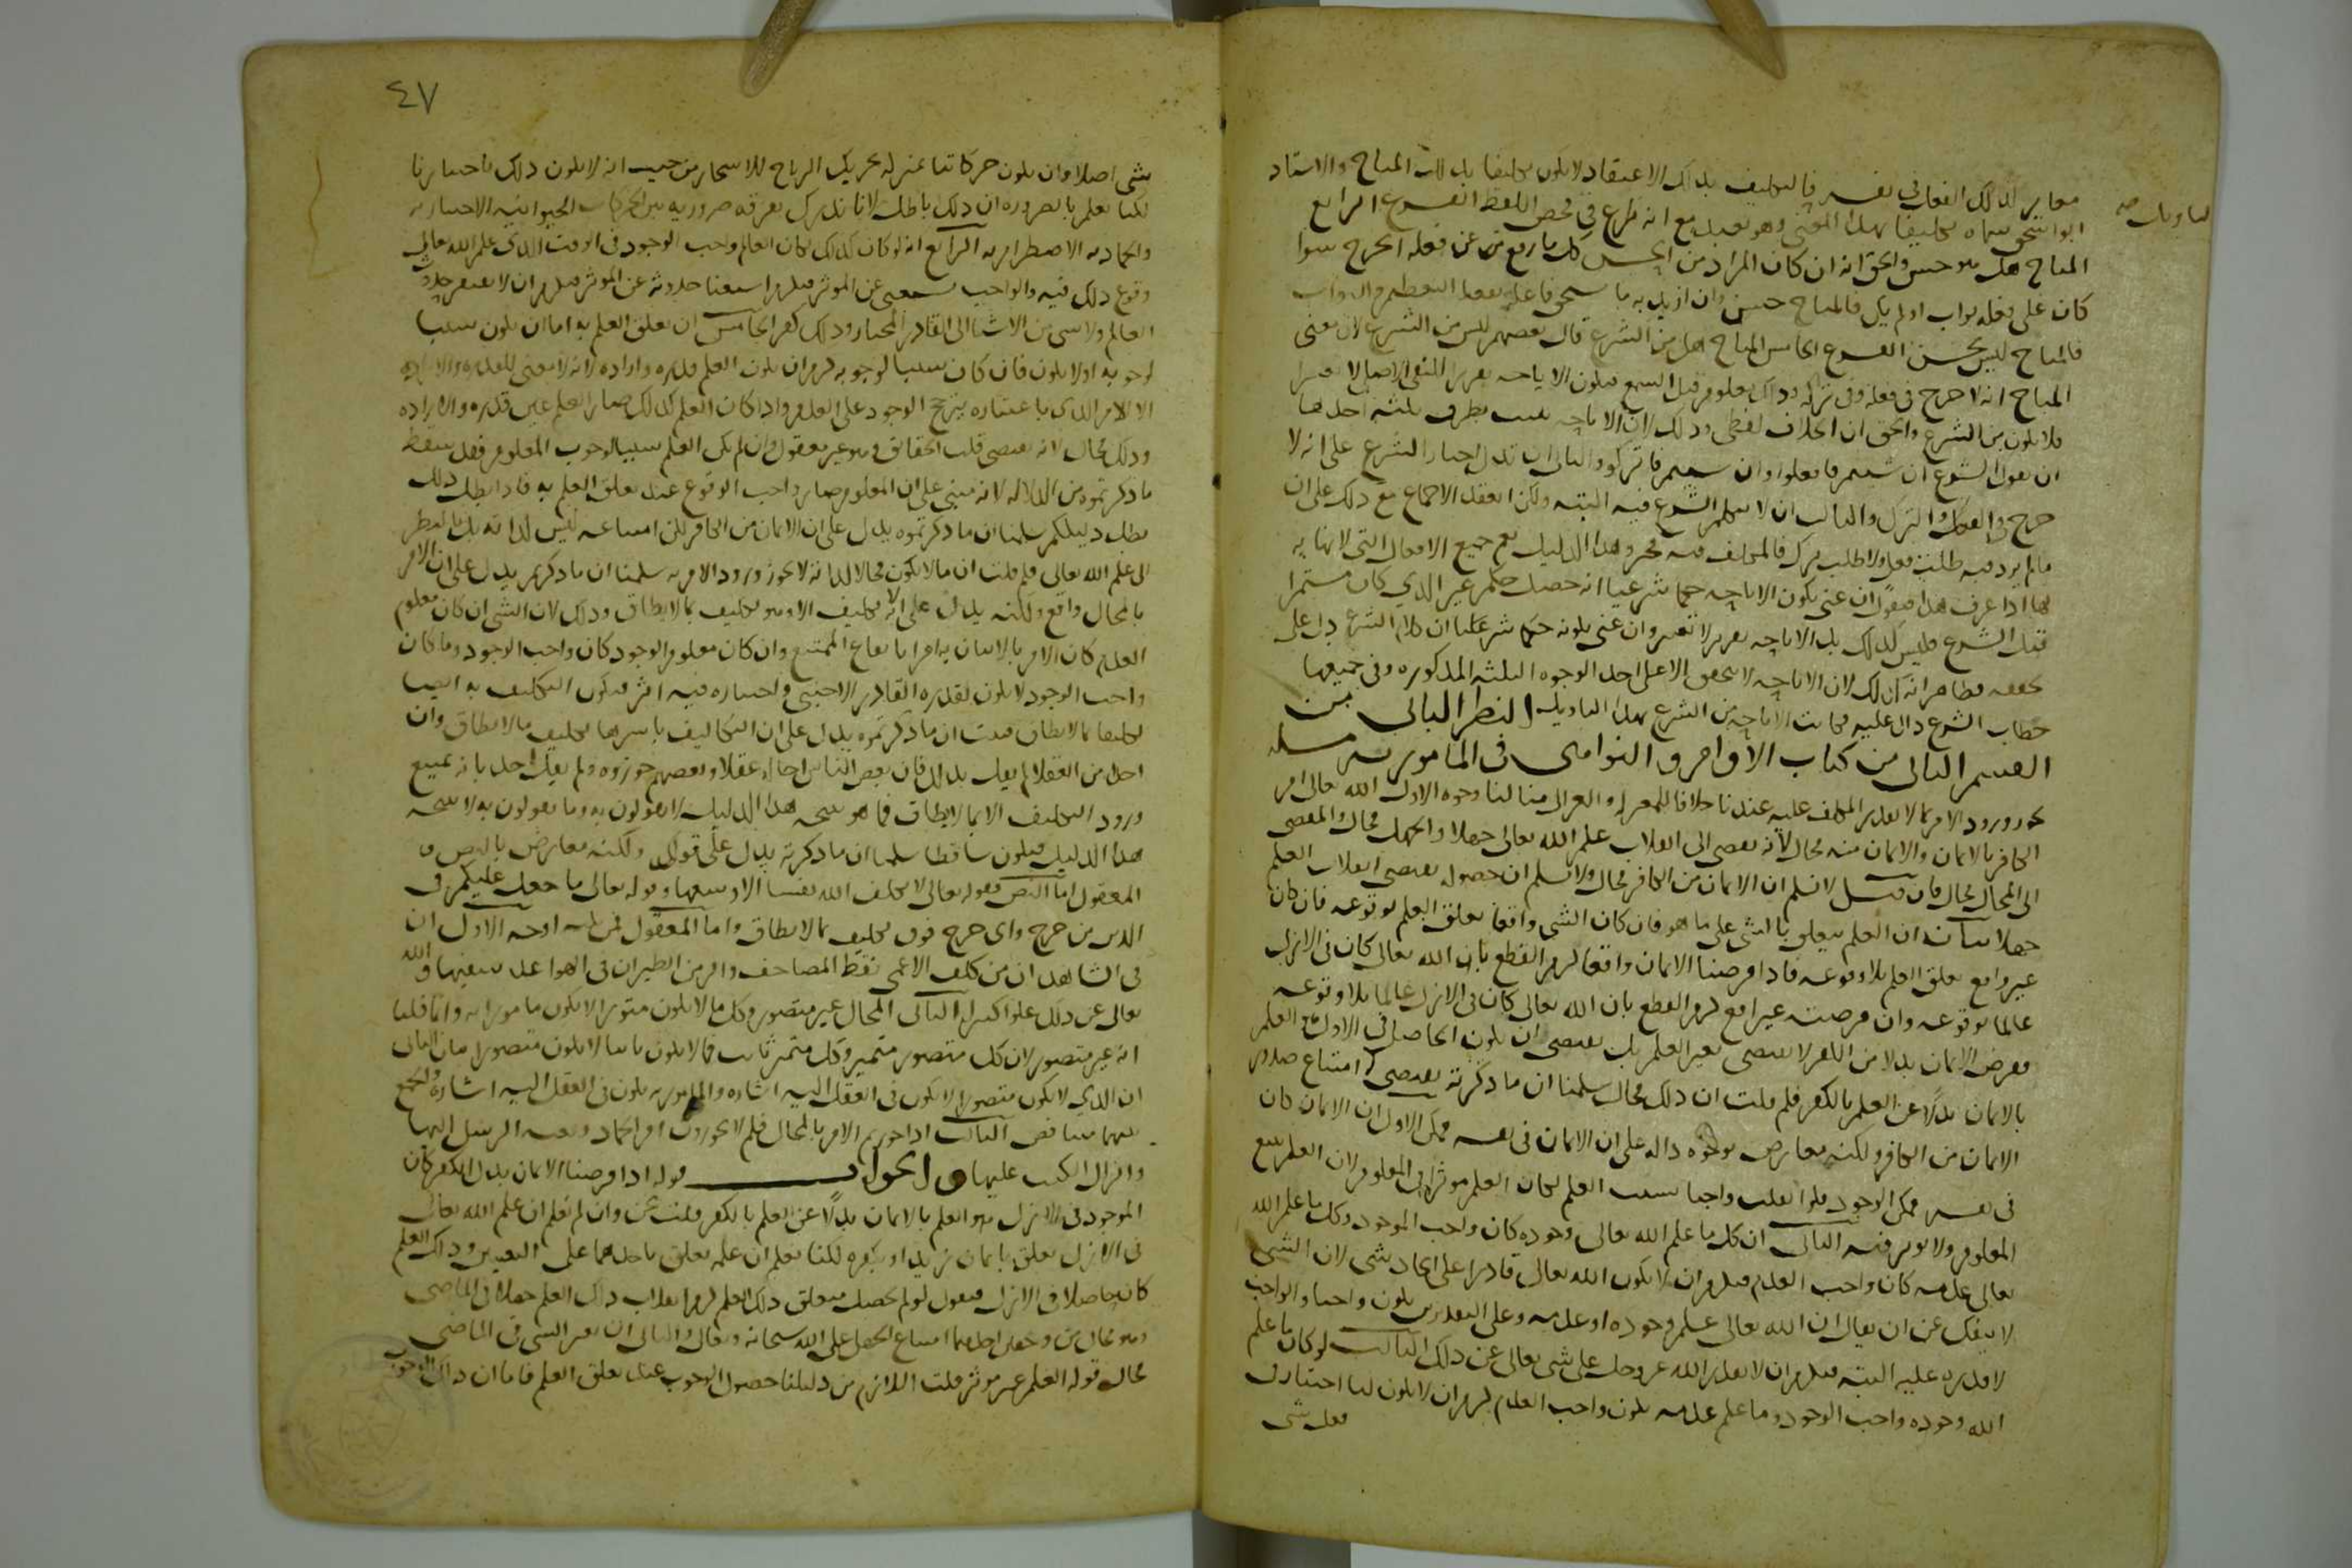 مغاير لذلك الفعل في نفسه فالتكليف بذلك الاعتقاد لا يكون تكليفا بذلك المباح والاستاد
ابو اسحق سماه تكليفا بهذا المعنى وهو بعيد مع انه نزاع في محض اللفظ الفرع الرابع
المباح هل هو حسن والحق انه ان كان المراد من الحسن كل ما رفع عن فعله الحرج سوا
كان على فعله ثواب او لم يكن فالمباح حسن وان اريد به ما يستحق فاعله بفعله التعظيم والثواب
فالمباح ليس بحسن الفرع الخامس المباح هل من الشرع قال بعضهم ليس من الشرع لان معنى
المباح انه لا حرج في فعله وفي تركه وذلك معلوم قبل السمع فتكون الاباحه تقرير النفي الاصلي لا تغييرا
فلا يكون من الشرع والحق ان الخلاف لفظي وذلك لان الاباحه تثبت بطرق ثلثه احدها
ان يقول الشرع ان شيتم فافعلوا وان شيتم فاتركوا والثاني ان تدل اخبار الشرع على انه لا
حرج في الفعل والترك والثالث ان لا يتكلم الشرع فيه البته ولكن انعقد الاجماع مع ذلك على ان
ما لم يرد فيه طلب فعل ولا طلب ترك فالمكلف فيه مخير وهذا الدليل يعم جميع الافعال التي لا نهايه
لها اذا عرف هذا فنقول ان عنى بكون الاباحه حكما شرعيا انه حصل حكم غير الذي كان مستمرا
قبل الشرع فليس كذلك بل الاباحه تقرير لا تغيير وان عنى بكونه حكما شرعيا ان كلام الشرع دل على
تحققه فظاهر انه كذلك لان الاباحه لا تتحقق الا على احد الوجوه الثلثه المذكوره وفي جميعها
خطاب الشرع دال عليه فكانت الاباحه من الشرع بهذا التاويل النظر الثاني من
القسم الثاني من كتاب الاوامر والنواهي في المامور به مسله
يجوز ورود الامر بما لا يقدر المكلف عليه عندنا خلافا للمعتزله والغزالي منا لنا وجوه الاول الله تعالى امر
الكافر بالايمان والايمان منه محال لانه يفضي الى انقلاب علم الله تعالى جهلا والجهل محال والمفضي
الى المحال محال فان قيل لا نسلم ان الايمان من الكافر محال ولا نسلم ان حصوله يقتضي انقلاب العلم
جهلا بيانه ان العلم يتعلق بالشي على ما هو فان كان الشي واقعا تعلق العلم بوقوعه فان كان
غير واقع تعلق العلم بلا وقوعه فاذا فرضنا الايمان واقعا لزم القطع بان الله تعالى كان في الازل
عالما بوقوعه وان فرضته غير واقع لزم القطع بان الله تعالى كان في الازل عالما بلا وقوعه
ففرض الايمان بدلا من الكفر لا يقتضي تغير العلم بل يقتضي ان يكون الحاصل في الازل هو العلم
بالايمان بدلا عن العلم بالكفر فلم قلت ان ذلك محال سلمنا ان ما ذكرته يقتضي امتناع صدور
الايمان من الكافر ولكنه معارض بوجوه داله على ان الايمان في نفسه ممكن الاول ان الايمان كان
في نفسه ممكن الوجود فلو انقلب واجبا بسبب العلم لكان العلم موثرا في المعلوم لان العلم يتبع
المعلوم ولا يوثر فيه الثاني ان كل ما علم الله تعالى وجوده كان واجب الوجود وكل ما علم الله
تعالى عدمه كان واجب العدم فيلزم ان لا يكون الله تعالى قادرا على ايجاد شي لان الشي
لا ينفك عن ان يقال ان الله تعالى علم وجوده او عدمه وعلى التقديرين يكون واجبا والواجب
لا قدره عليه البته فيلزم ان لا يقدر الله عز وجل على شي تعالى عن ذلك الثالث لو كان ما علم
الله وجوده واجب الوجود وما علم عدمه يكون واجب العدم لزم ان لا يكون لنا اختيار في
فعل شي
٤٧
شي اصلا وان يكون حركاتنا بمنزله تحريك الرياح للاشجار من حيث انه لا يكون ذلك باختيارنا
لكنا نعلم بالضروره ان ذلك باطل لانا ندرك تفرقه ضروريه بين الحركات الحيوانيه الاختياريه
والجماديه الاضطراريه الرابع انه لو كان كذلك لكان العالم واجب الوجود في الوقت الذي علم الله تعالى
وقوع ذلك فيه والواجب يستغني عن الموثر فيلزم استغنا حدوثه عن الموثر فيلزم ان لا يفتقر حدوث
العالم ولا شي من الاشيا الى القادر المختار وذلك كفر الخامس ان تعلق العلم به اما ان يكون سببا
لوجوبه او لا يكون فان كان سببا لوجوبه لزم ان يكون العلم قدره واراده لانه لا معنى للقدره والاراده
الا الامر الذي باعتباره يترجح الوجود على العدم واذا كان العلم كذلك صار العلم عين قدره والاراده
وذلك محال لانه يقتضي قلب الحقائق وهو غير معقول وان لم يكن العلم سببا لوجوب المعلوم فقد سقط
ما ذكرتموه من الدلاله لانه مبني على ان المعلوم صار واجب الوقوع عند تعلق العلم به فاذا بطل ذلك
بطل دليلكم سلمنا ان ما ذكرتموه يدل على ان الايمان من الكافر لكن امتناعه ليس لذاته بل بالنظر
الى علم الله تعالى فلم قلت ان ما لا يكون محالا لذاته لا يجوز ورود الامر به سلمنا ان ما ذكرتم يدل على ان الامر
بالمحال واقع ولكنه يدل على انه لا تكليف الا وهو تكليف بما لا يطاق وذلك لان الشي ان كان معلوم
العدم كان الامر بالاتيان به امرا بايقاع الممتنع وان كان معلوم الوجود كان واجب الوجود وما كان
واجب الوجود لا يكون لقدره القادر الاجنبي واختياره فيه اثر فيكون التكليف به ايضا
تكليفا بما لا يطاق فثبت ان ما ذكرتموه يدل على ان التكاليف باسرها تكليف ما لا يطاق وان
احدا من العقلا لم يقل بذلك فان بعض الناس احاله عقلا وبعضهم جوزوه ولم يقل احد بانه يمتنع
ورود التكليف الا بما لا يطاق فما هو نتيجه هذا الدليل لا تقولون به وما تقولون به لا ينتجه
هذا الدليل فيكون ساقطا سلمنا ان ما ذكرته يدل على قولك ولكنه معارض بالنص و
المعقول اما النص فقوله تعالى لا يكلف الله نفسا الا وسعها وقوله تعالى ما جعل عليكم في
الدين من حرج واي حرج فوق تكليف ما لا يطاق واما المعقول فمن ثلثه اوجه الاول ان
في الشاهد ان من كلف الاعمى نقط المصاحف والزمن الطيران في الهوا عد سفيها والله
تعالى عن ذلك علوا كبيرا الثاني المحال غير متصور وكل ما لا يكون متصورا لا يكون مامورا به وانما قلنا
انه غير متصور لان كل متصور متميز وكل متميز ثابت فما لا يكون ثابتا لا يكون متصورا بيان الثاني
ان الذي لا يكون متصورا لا يكون في العقل اليه اشاره والمامور به يكون في العقل اليه اشاره والجمع
بينهما متناقض الثالث اذا جوزتم الامر بالمحال فلم لا تجوزون امر الجماد وبعثه الرسل اليها
وانزال الكتب عليها والجواب قوله اذا فرضنا الايمان بدل الكفر كان
الموجود في الازل هو العلم بالايمان بدلا عن العلم بالكفر قلت نحن وان لم نعلم ان علم الله تعالى
في الازل تعلق بايمان زيد او بكفره لكنا نعلم ان علمه تعلق باحدهما على التعيين وذلك العلم
كان حاصلا في الازل فنقول لو لم يحصل متعلق ذلك العلم لزم انقلاب ذلك العلم جهلا في الماضي
وهو محال من وجهين احدهما امتناع الجهل على الله سبحانه وتعالى والثاني ان تغير الشي في الماضي
محال قوله العلم غير موثر قلت اللازم من دليلنا حصول الوجوب عند تعلق العلم فاما ان ذلك الوجوب